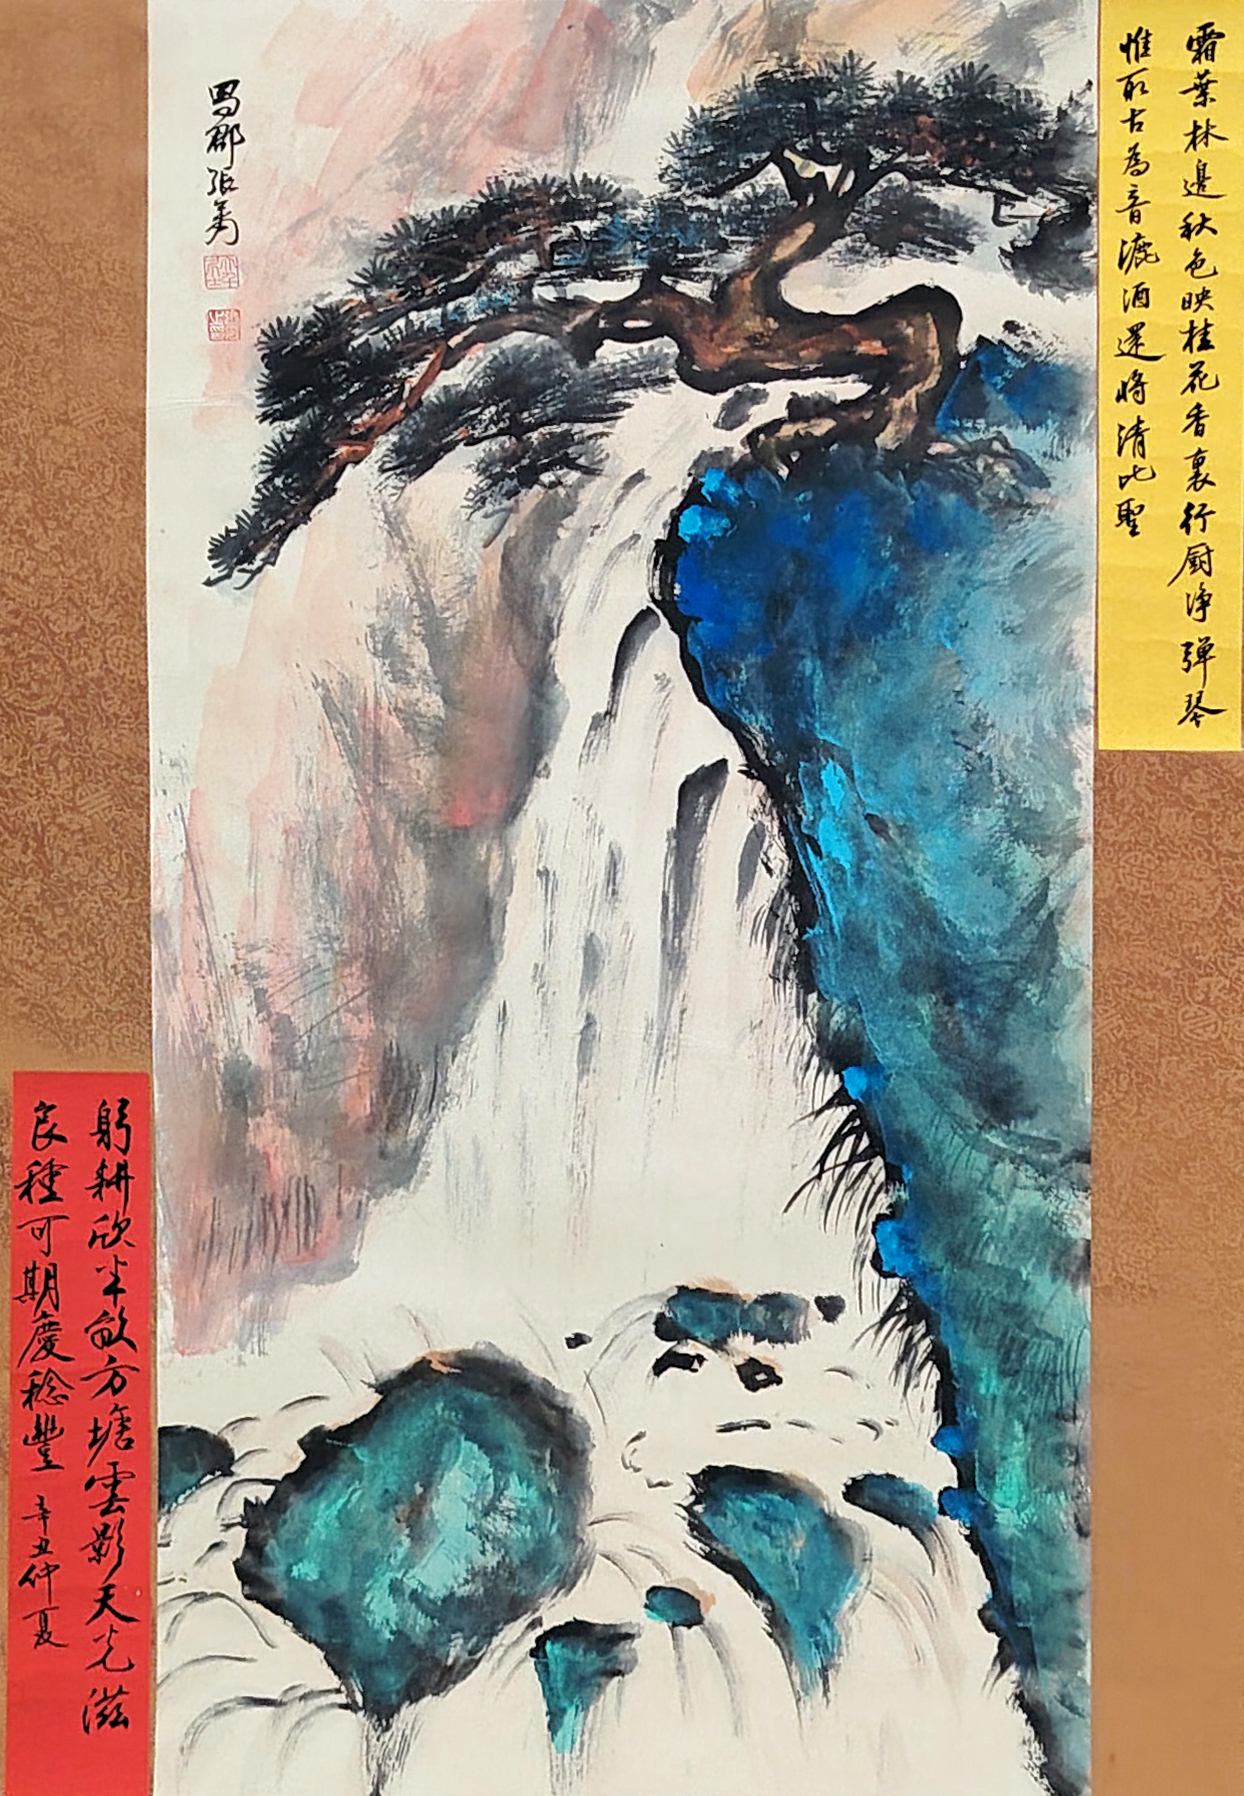 霜葉林邊秋色映桂花香裏行厨淨彈琴
惟取古為音漉酒還将清比聖
蜀郡張爰
躬耕欣半畝方塘雲影天光滋
良種可期慶稔豐 辛丑仲夏